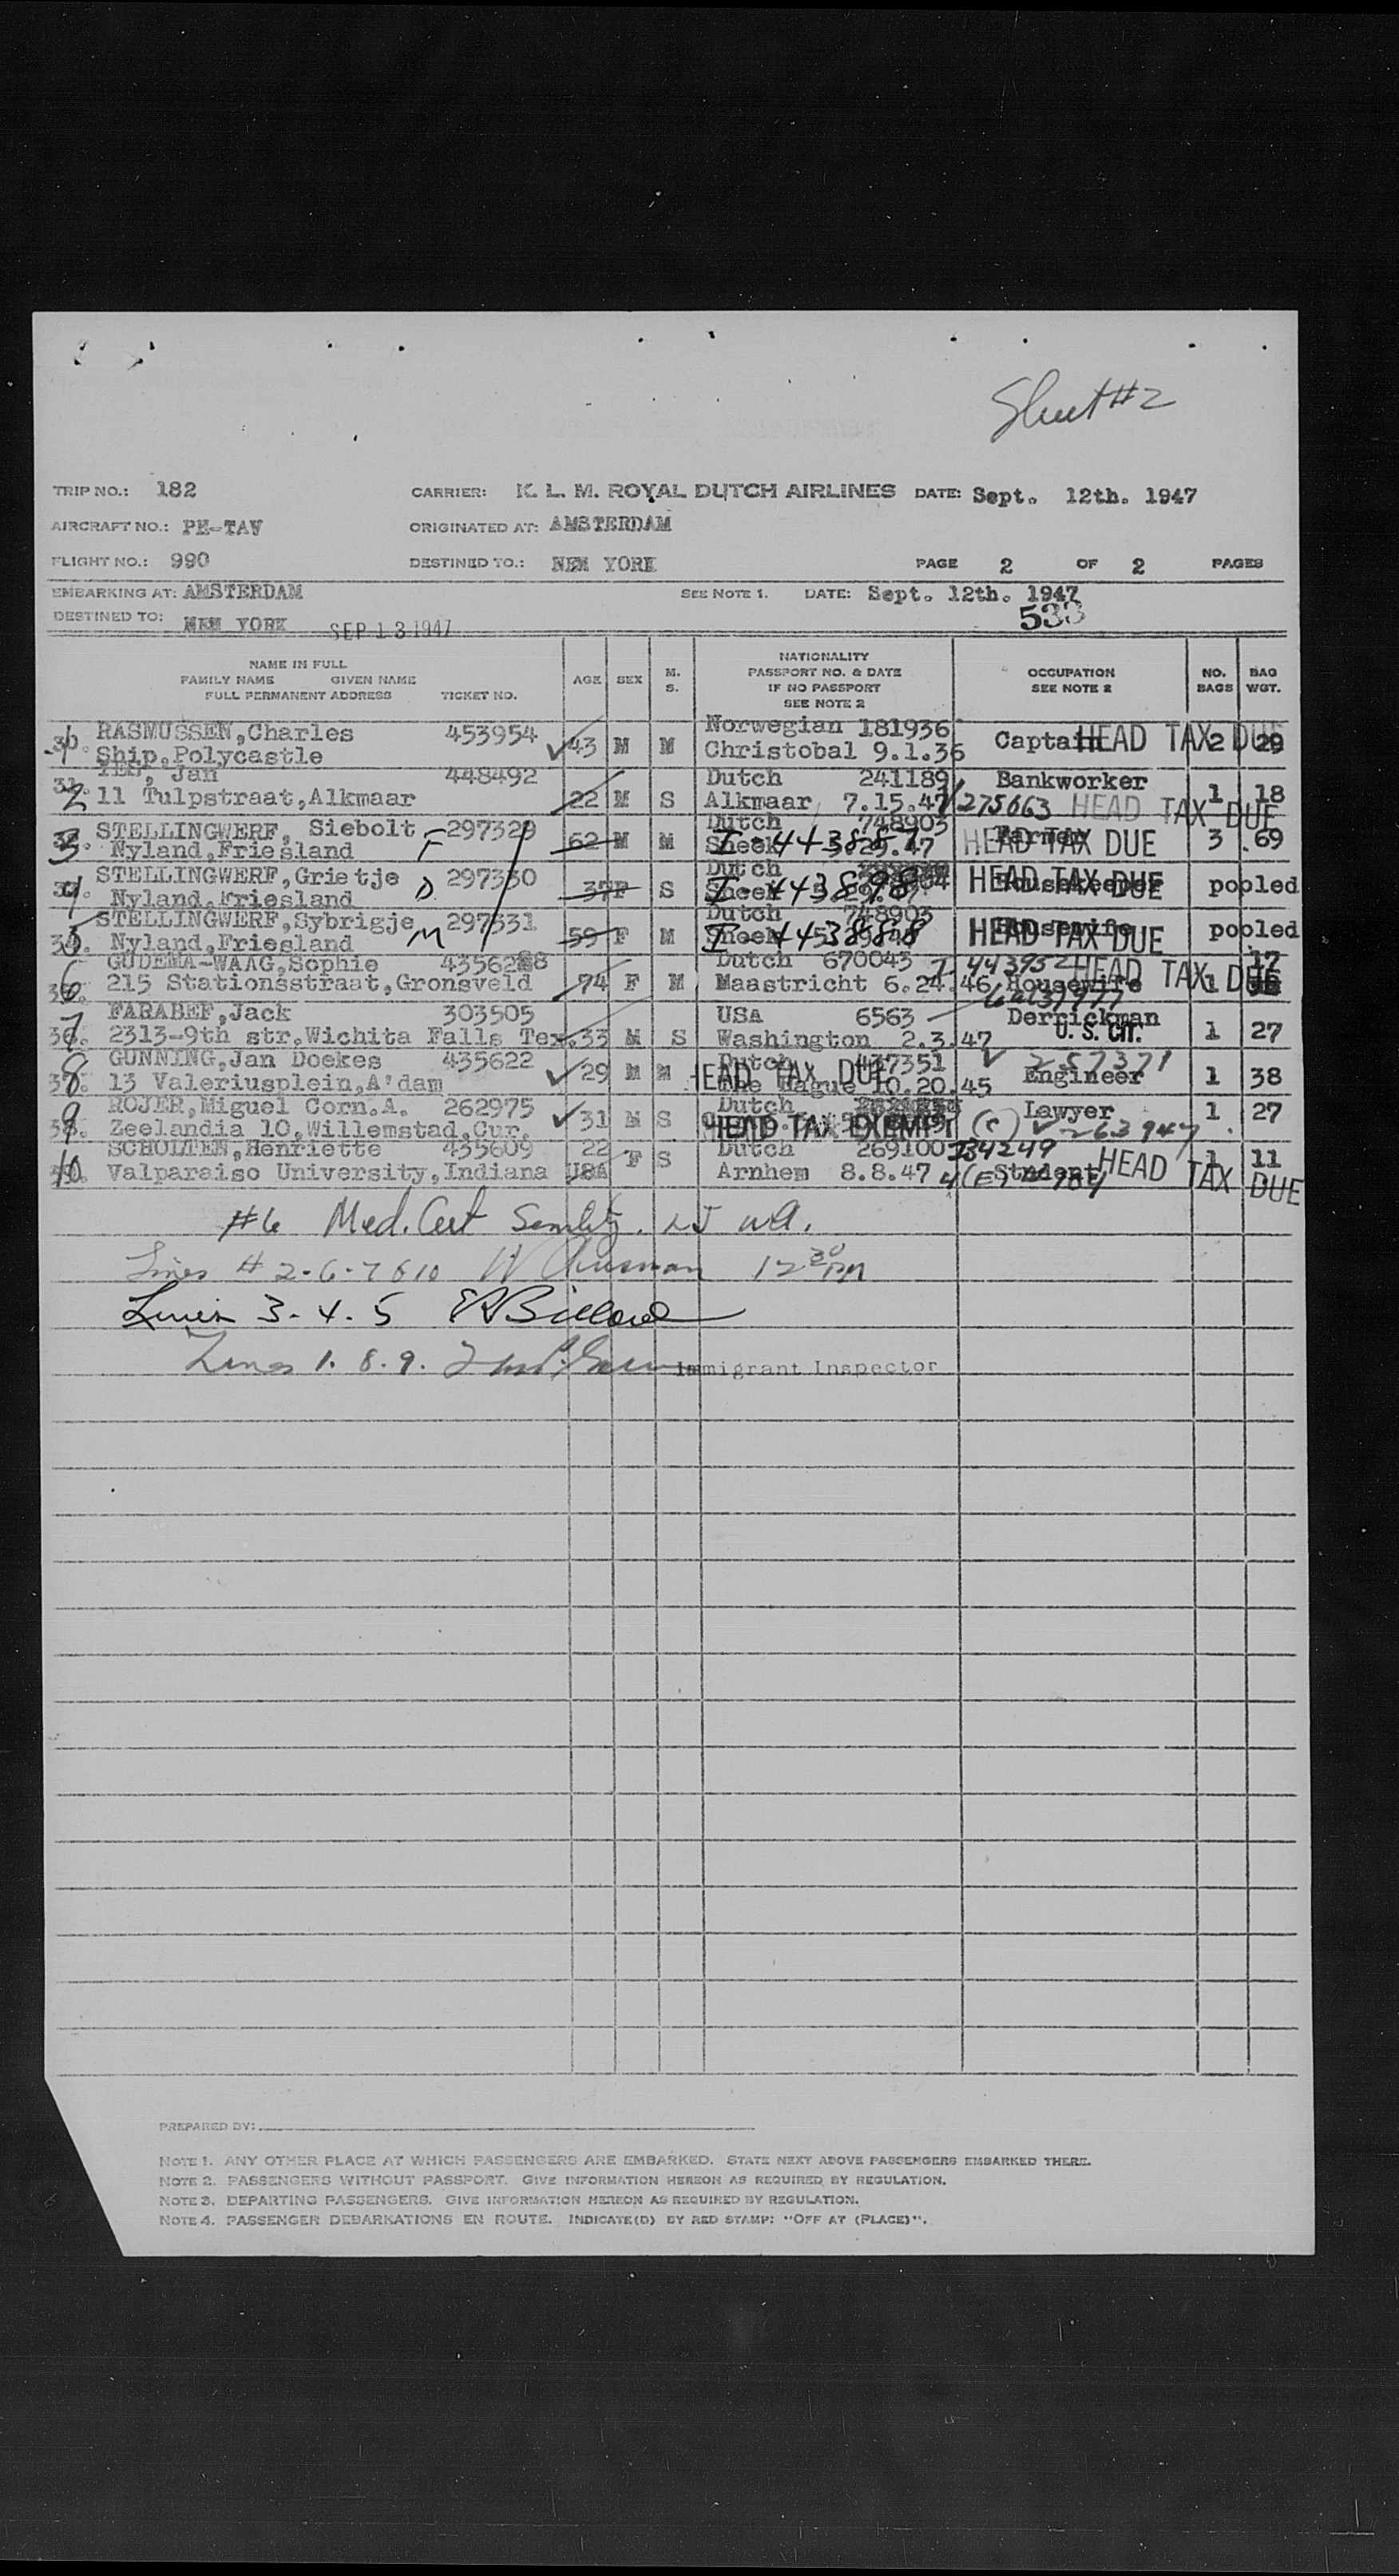 Sheet #2
TRIP NO.: 182 CARRIER: K. L. M. ROYAL DUTCH AIRLINES DATE: Sept. 12th. 1947
AIRCRAFT NO.: PH-TAV ORIGINATED AT: AMSTERDAM
FLIGHT NO.: 990 DESTINED TO.: NEW YORK PAGE 2 OF 2 PAGES
EMBARKING AT: AMSTERDAM SEE NOTE 1. DATE: Sept. 12th. 1947
DESTINED TO: NEW YORK SEP 13 1947 533
NAME IN FULL
FAMILY NAME GIVEN NAME
FULL PERMANENT ADDRESS TICKET NO. AGE SEX M. S. NATIONALITY PASSPORT NO. & DATE IF NO PASSPORT SEE NOTE 2 OCCUPATION SEE NOTE 2 NO. BAGS BAG WGT.
1 RASMUSSEN,Charles 453954 Norwegian 181936
Ship.Polycastle 43 M M Christobal 9.1.36 Captain HEAD TAX DUE 2 29
Jan 448492 Dutch 241189 Bankworker
2 11 Tulpstraat,Alkmaar 22 M S Alkmaar 7.15.47 275663 HEAD TAX DUE 1 18
3 STELLINGWERF, Siebolt 297329 Dutch 748903
Nyland,Friesland F 62 M M Sneek I-443887 HEAD TAX DUE 3 69
4 STELLINGWERF,Grietje 297330 Dutch
Nyland,Friesland D 37 F S Sneek I-443898 Housekeeper HEAD TAX DUE pooled
5 STELLINGWERF,Sybrigje 297331 Dutch 748903
Nyland,Friesland M 59 F M Sneek I-443888 Housewife HEAD TAX DUE pooled
6 GUDEMA-WAAG,Sophie Dutch 670043 I-443952 HEAD TAX DUE 17
215 Stationsstraat,Gronsveld 74 F M Maastricht 6.24.46 Housewife 1
7 FARABEF,Jack 303505 USA 6563 Derrickman
2313-9th str.Wichita Falls Tex. 33 M S Washington 2.3.47 U. S. CIT. 1 27
8 GUNNING,Jan Doekes 435622 Dutch 437351 HEAD TAX DUE 257371
13 Valeriusplein,A'dam 29 M M The Hague 10.20.45 Engineer 1 38
9 ROJER,Miguel Corn.A. 262975 Dutch Lawyer 1 27
Zeelandia 10,Willemstad,Cur. 31 M S HEAD TAX EXEMPT (C) 263947
10 SCHOLTEN,Henriette 435609 22 Dutch 269100 234249
Valparaiso University,Indiana USA F S Arnhem 8.8.47 4(E) Student HEAD TAX DUE 1 11
#6 Med. Cert
Lines # 2-6-7 & 10 12 30 PM
Lines 3-4-5
Lines 1. 8. 9. Immigrant Inspector
PREPARED BY:
NOTE 1. ANY OTHER PLACE AT WHICH PASSENGERS ARE EMBARKED. STATE NEXT ABOVE PASSENGERS EMBARKED THERE.
NOTE 2. PASSENGERS WITHOUT PASSPORT. GIVE INFORMATION HEREON AS REQUIRED BY REGULATION.
NOTE 3. DEPARTING PASSENGERS. GIVE INFORMATION HEREON AS REQUIRED BY REGULATION.
NOTE 4. PASSENGER DEBARKATIONS EN ROUTE. INDICATE(D) BY RED STAMP: "OFF AT (PLACE)".